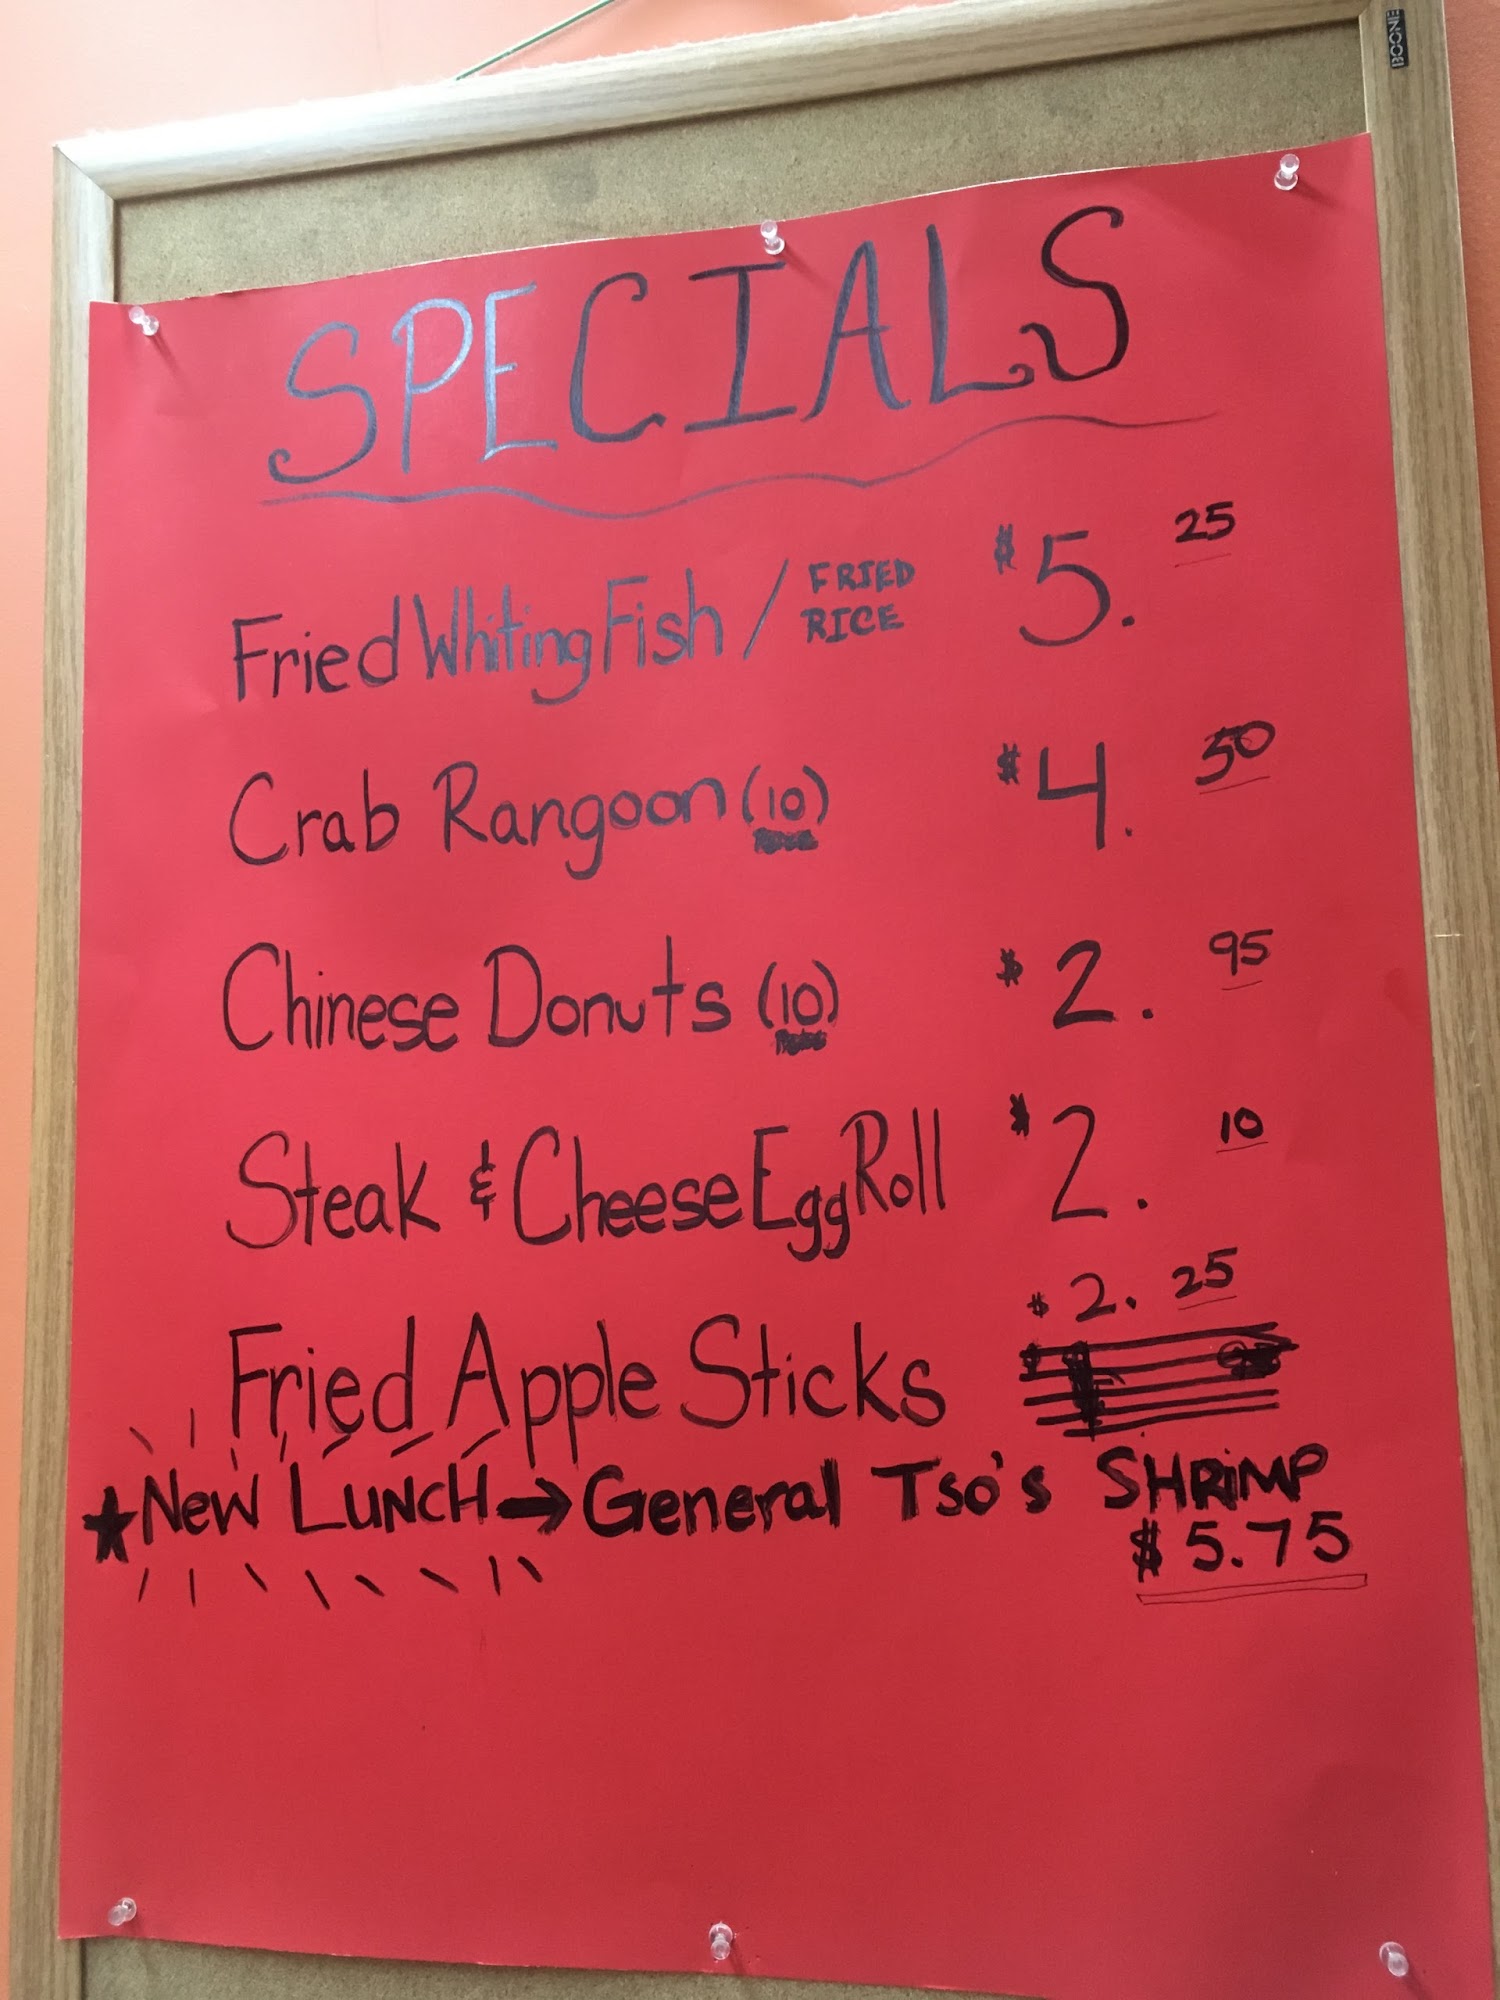 BOONE
SPECIALS
Fried Whiting Fish / FRIED RICE $5.25
Crab Rangoon (10) $4.50
Chinese Donuts (10) $2.95
Steak & Cheese Egg Roll $2.10
Fried Apple Sticks $2.25
★ New LUNCH → General Tso's SHRIMP
$5.75